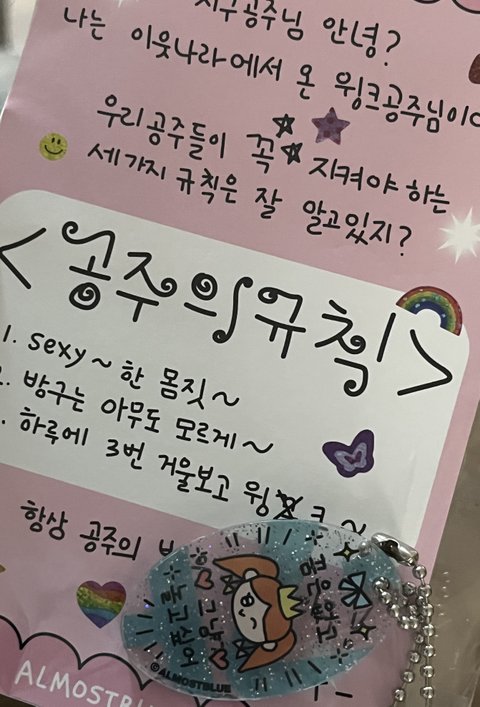 지구공주님 안녕?
나는 이웃나라에서 온 윙크공주님이야
우리공주들이 꼭 지켜야 하는
세가지 규칙은 잘 알고있지?
<공주의규칙>
1. sexy~한 몸짓~
2. 방구는 아무도 모르게~
3. 하루에 3번 거울보고 윙크~
항상 공주의
꿈은 없고
그냥
놀고싶어
©ALMOSTBLUE
ALMOSTBL